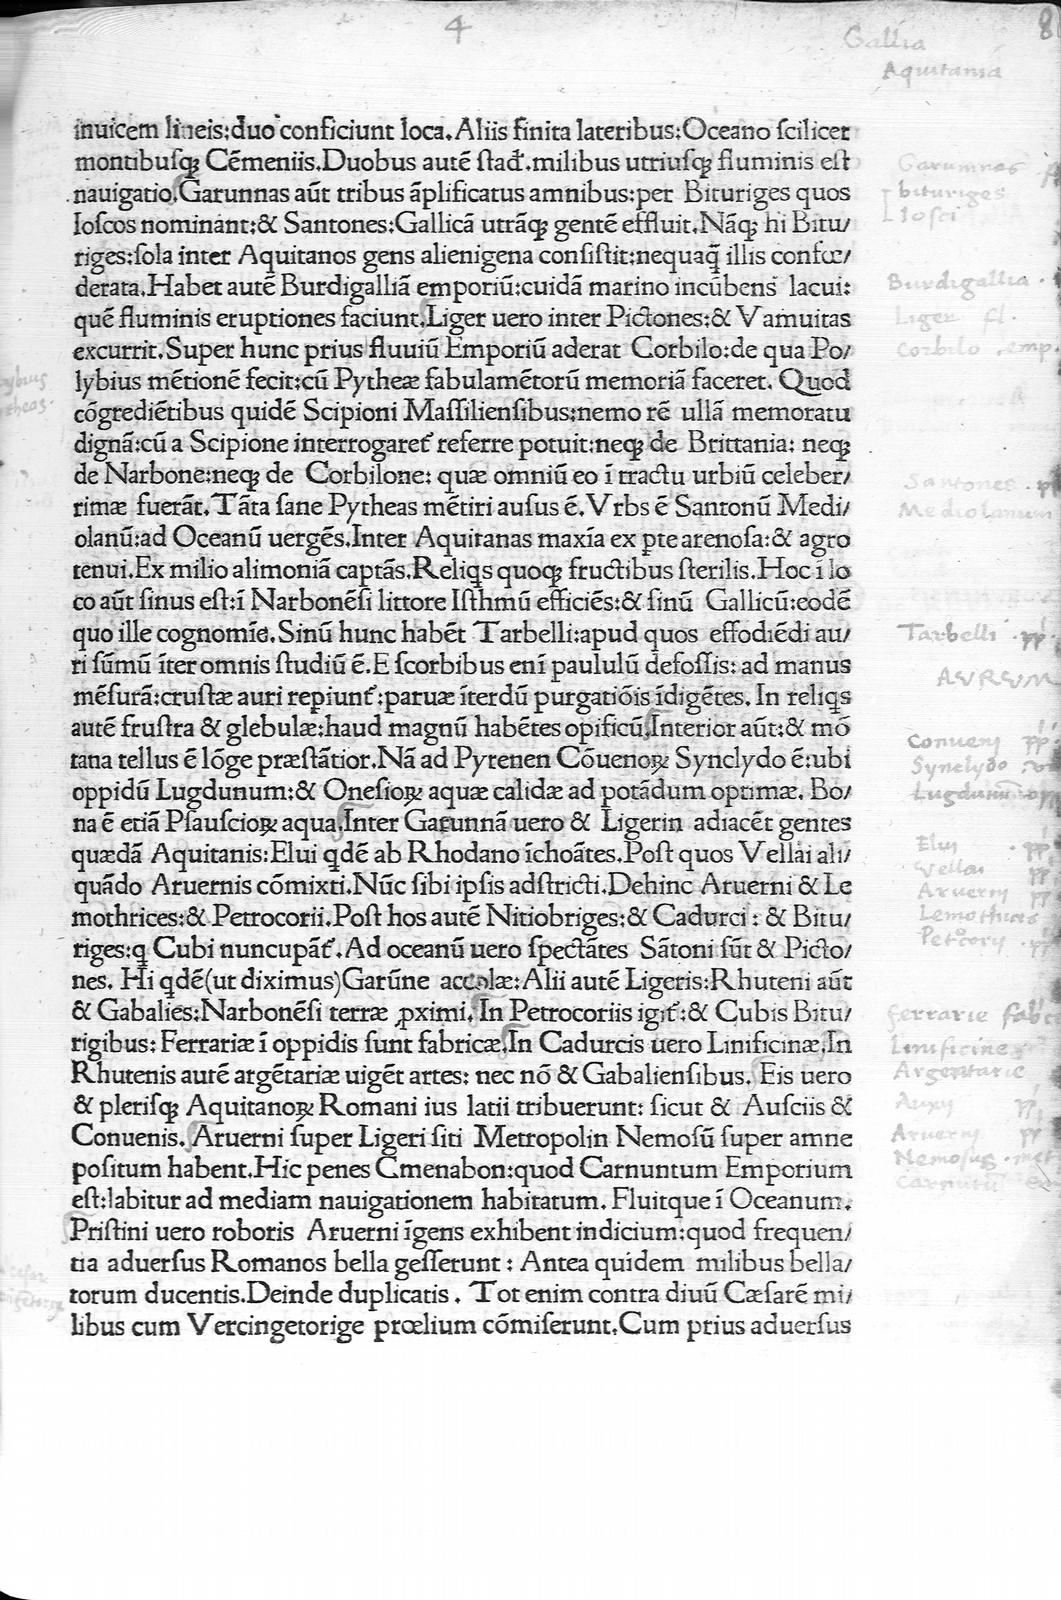 4
8
Gallia
Aquitania
inuicem lineis:duo conficiunt loca.Aliis finita lateribus:Oceano ſcilicet
montibuſqꝫ Cēmeniis.Duobus autē ſtad̄.milibus utriuſqꝫ fluminis eſt
nauigatio.Garunnas aūt tribus āplificatus amnibus:per Bituriges quos
Ioſcos nominant:& Santones:Gallicā utrāqꝫ gentē effluit.Nāqꝫ hi Bitu/
riges:ſola inter Aquitanos gens alienigena conſiſtit:nequaq̄ illis confœ/
derata.Habet autē Burdigalliā emporiū:cuidā marino incūbens lacui:
quē fluminis eruptiones faciunt.Liger uero inter Pictones:& Vamuitas
excurrit.Super hunc prius fluuiū Emporiū aderat Corbilo:de qua Po/
lybius mētionē fecit:cū Pytheæ fabulamētorū memoriā faceret. Quod
cōgrediētibus quidē Scipioni Maſſilienſibus:nemo rē ullā memoratu
dignā:cū a Scipione interrogaret᷑ referre potuit:neqꝫ de Brittania: neqꝫ
de Narbone:neqꝫ de Corbilone: quæ omniū eo ī tractu urbiū celeber/
rimæ fuerāt. Tāta ſane Pytheas mētiri auſus ē. Vrbs ē Santonū Medi/
olanū:ad Oceanū uergēs.Inter Aquitanas maxīa ex ꝑte arenoſa:& agro
tenui.Ex milio alimoniā captās.Reliqs quoqꝫ fructibus ſterilis.Hoc ī lo
co aūt ſinus eſt:ī Narbonēſi littore Iſthmū efficiēs:& ſinū Gallicū:eodē
quo ille cognomīe.Sinū hunc habēt Tarbelli:apud quos effodiēdi au/
ri ſūmū īter omnis ſtudiū ē.E ſcorbibus enī paululū defoſſis: ad manus
mēſurā:cruſtæ auri reꝑiunt᷑:paruæ īterdū purgatiōis īdigētes. In reliqs
autē fruſtra & glebulæ:haud magnū habētes opificū.Interior aūt:& mō
tana tellus ē lōge præſtātior.Nā ad Pyrenen Cōuenoꝝ Synclydo ē:ubi
oppidū Lugdunum:& Oneſioꝝ aquæ calidæ ad potādum optimæ. Bo/
na ē etiā Pſauſcioꝝ aqua.Inter Garunnā uero & Ligerin adiacēt gentes
quædā Aquitanis:Elui qdē ab Rhodano īchoātes.Poſt quos Vellai ali/
quādo Aruernis cōmixti.Nūc ſibi ipſis adſtricti.Dehinc Aruerni & Le
mothrices:& Petrocorii.Poſt hos autē Nitiobriges:& Cadurci: & Bitu/
riges:q Cubi nuncupāt᷑.Ad oceanū uero ſpectātes Sātoni ſūt & Picto/
nes. Hi qdē(ut diximus)Garūne accolæ:Alii autē Ligeris:Rhuteni aūt
& Gabalies:Narbonēſi terræ ꝓximi.In Petrocoriis igit᷑:& Cubis Bitu/
rigibus: Ferrariæ ī oppidis ſunt fabricæ.In Cadurcis uero Linificinæ.In
Rhutenis autē argētariæ uigēt artes: nec nō & Gabalienſibus. Eis uero
& pleriſqꝫ Aquitanoꝝ Romani ius latii tribuerunt: ſicut & Auſciis &
Conuenis. Aruerni ſuper Ligeri ſiti Metropolin Nemoſū ſuper amne
poſitum habent.Hic penes Cmenabon:quod Carnuntum Emporium
eſt:labitur ad mediam nauigationem habitatum. Fluitque ī Oceanum.
Priſtini uero roboris Aruerni īgens exhibent indicium:quod frequen/
tia aduerſus Romanos bella geſſerunt: Antea quidem milibus bella/
torum ducentis.Deinde duplicatis. Tot enim contra diuū Cæſarē mi/
libus cum Vercingetorige prœlium cōmiſerunt.Cum prius aduerſus
Garumnas
bituriges
Iosci
Burdigallia
Liger fl.
Corbilo .emp.
Santones
Mediolanum
Tarbelli
AVRVM
Conuenj
Synclydo
Lugdunum
Eluj
Vellai
Aruernj
Lemothrices
Petrocorij
ferrarie
Linificine
Argentarie
Auxij
Aruernj
Nemosus